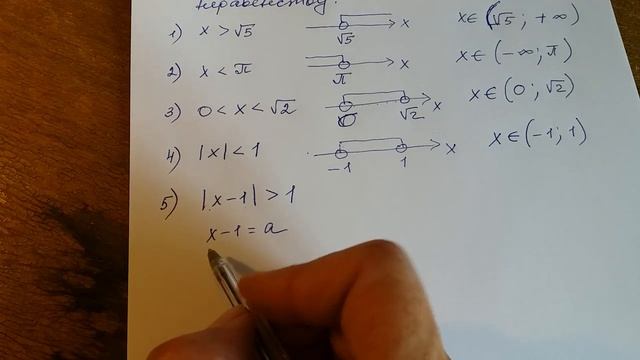 неравенству:
1) x > √5 √5 x x ∈ (√5 ; +∞)
2) x < π π x x ∈ (-∞; π)
3) 0 < x < √2 0 √2 x x ∈ (0 ; √2)
4) |x| < 1 -1 1 x x ∈ (-1; 1)
5) |x-1| > 1
x-1 = a